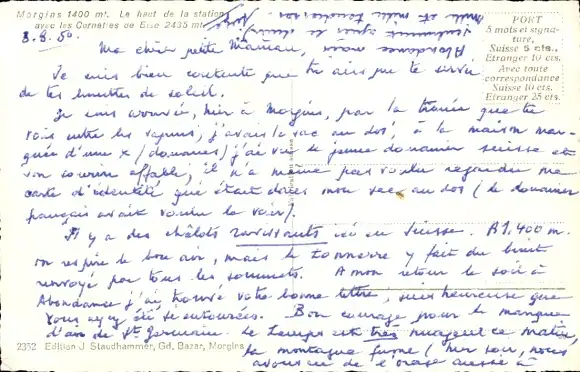 Morgins 1400 mt. Le haut de la station
avec les Cornettes de Bise 2435 mt.
PORT
5 mots et signa-
ture,
Suisse 5 cts.,
Etranger 10 cts.
Avec toute
correspondance
Suisse 10 cts.
Etranger 25 cts.
8.8.50.
Ma chère petite Maman,
Je suis bien contente que tu aies pu te servir
de tes lunettes de soleil.
Je suis arrivée, hier à Morgins, par la trouée que tu
vois entre les sapins, j'avais le sac au dos, à la maison mar-
quée d'une x (douanes) j'ai vu le jeune douanier suisse et
son sourire affable, il n'a même pas voulu regarder ma
carte d'identité qui était dans mon sac au dos (le douanier
français avait voulu la voir).
Il y a des châlets ravissants ici en Suisse. A 1.400 m.
on respire le bon air, mais le tonnerre y fait du bruit
renvoyé par tous les sommets. A mon retour le soir à
Abondance j'ai trouvé votre bonne lettre, suis heureuse que
vous ayez été si entourées. Bon courage pour le manque
d'air de St Germain. Le temps est très nuageux ce matin,
la montagne fume (hier soir, nous
avons eu de l'orage aussi à
Abondance
2352 Edition J. Staudhammer, Gd. Bazar, Morgins